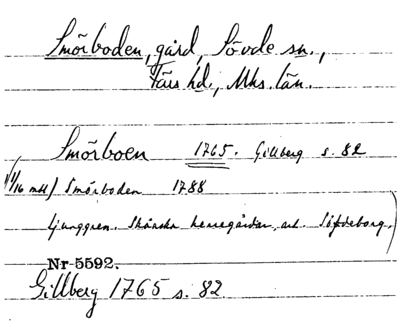 Smörboden, gård, Sövde sn.,
Färs hd., Mhs. län.
Smörboen 1765. Gillberg s. 82
(1/16 mtl) Smörboden 1788
Ljunggren. Skånska herregårdar, art. Söfdeborg.)
Nr 5592.
Gillberg 1765 s. 82.